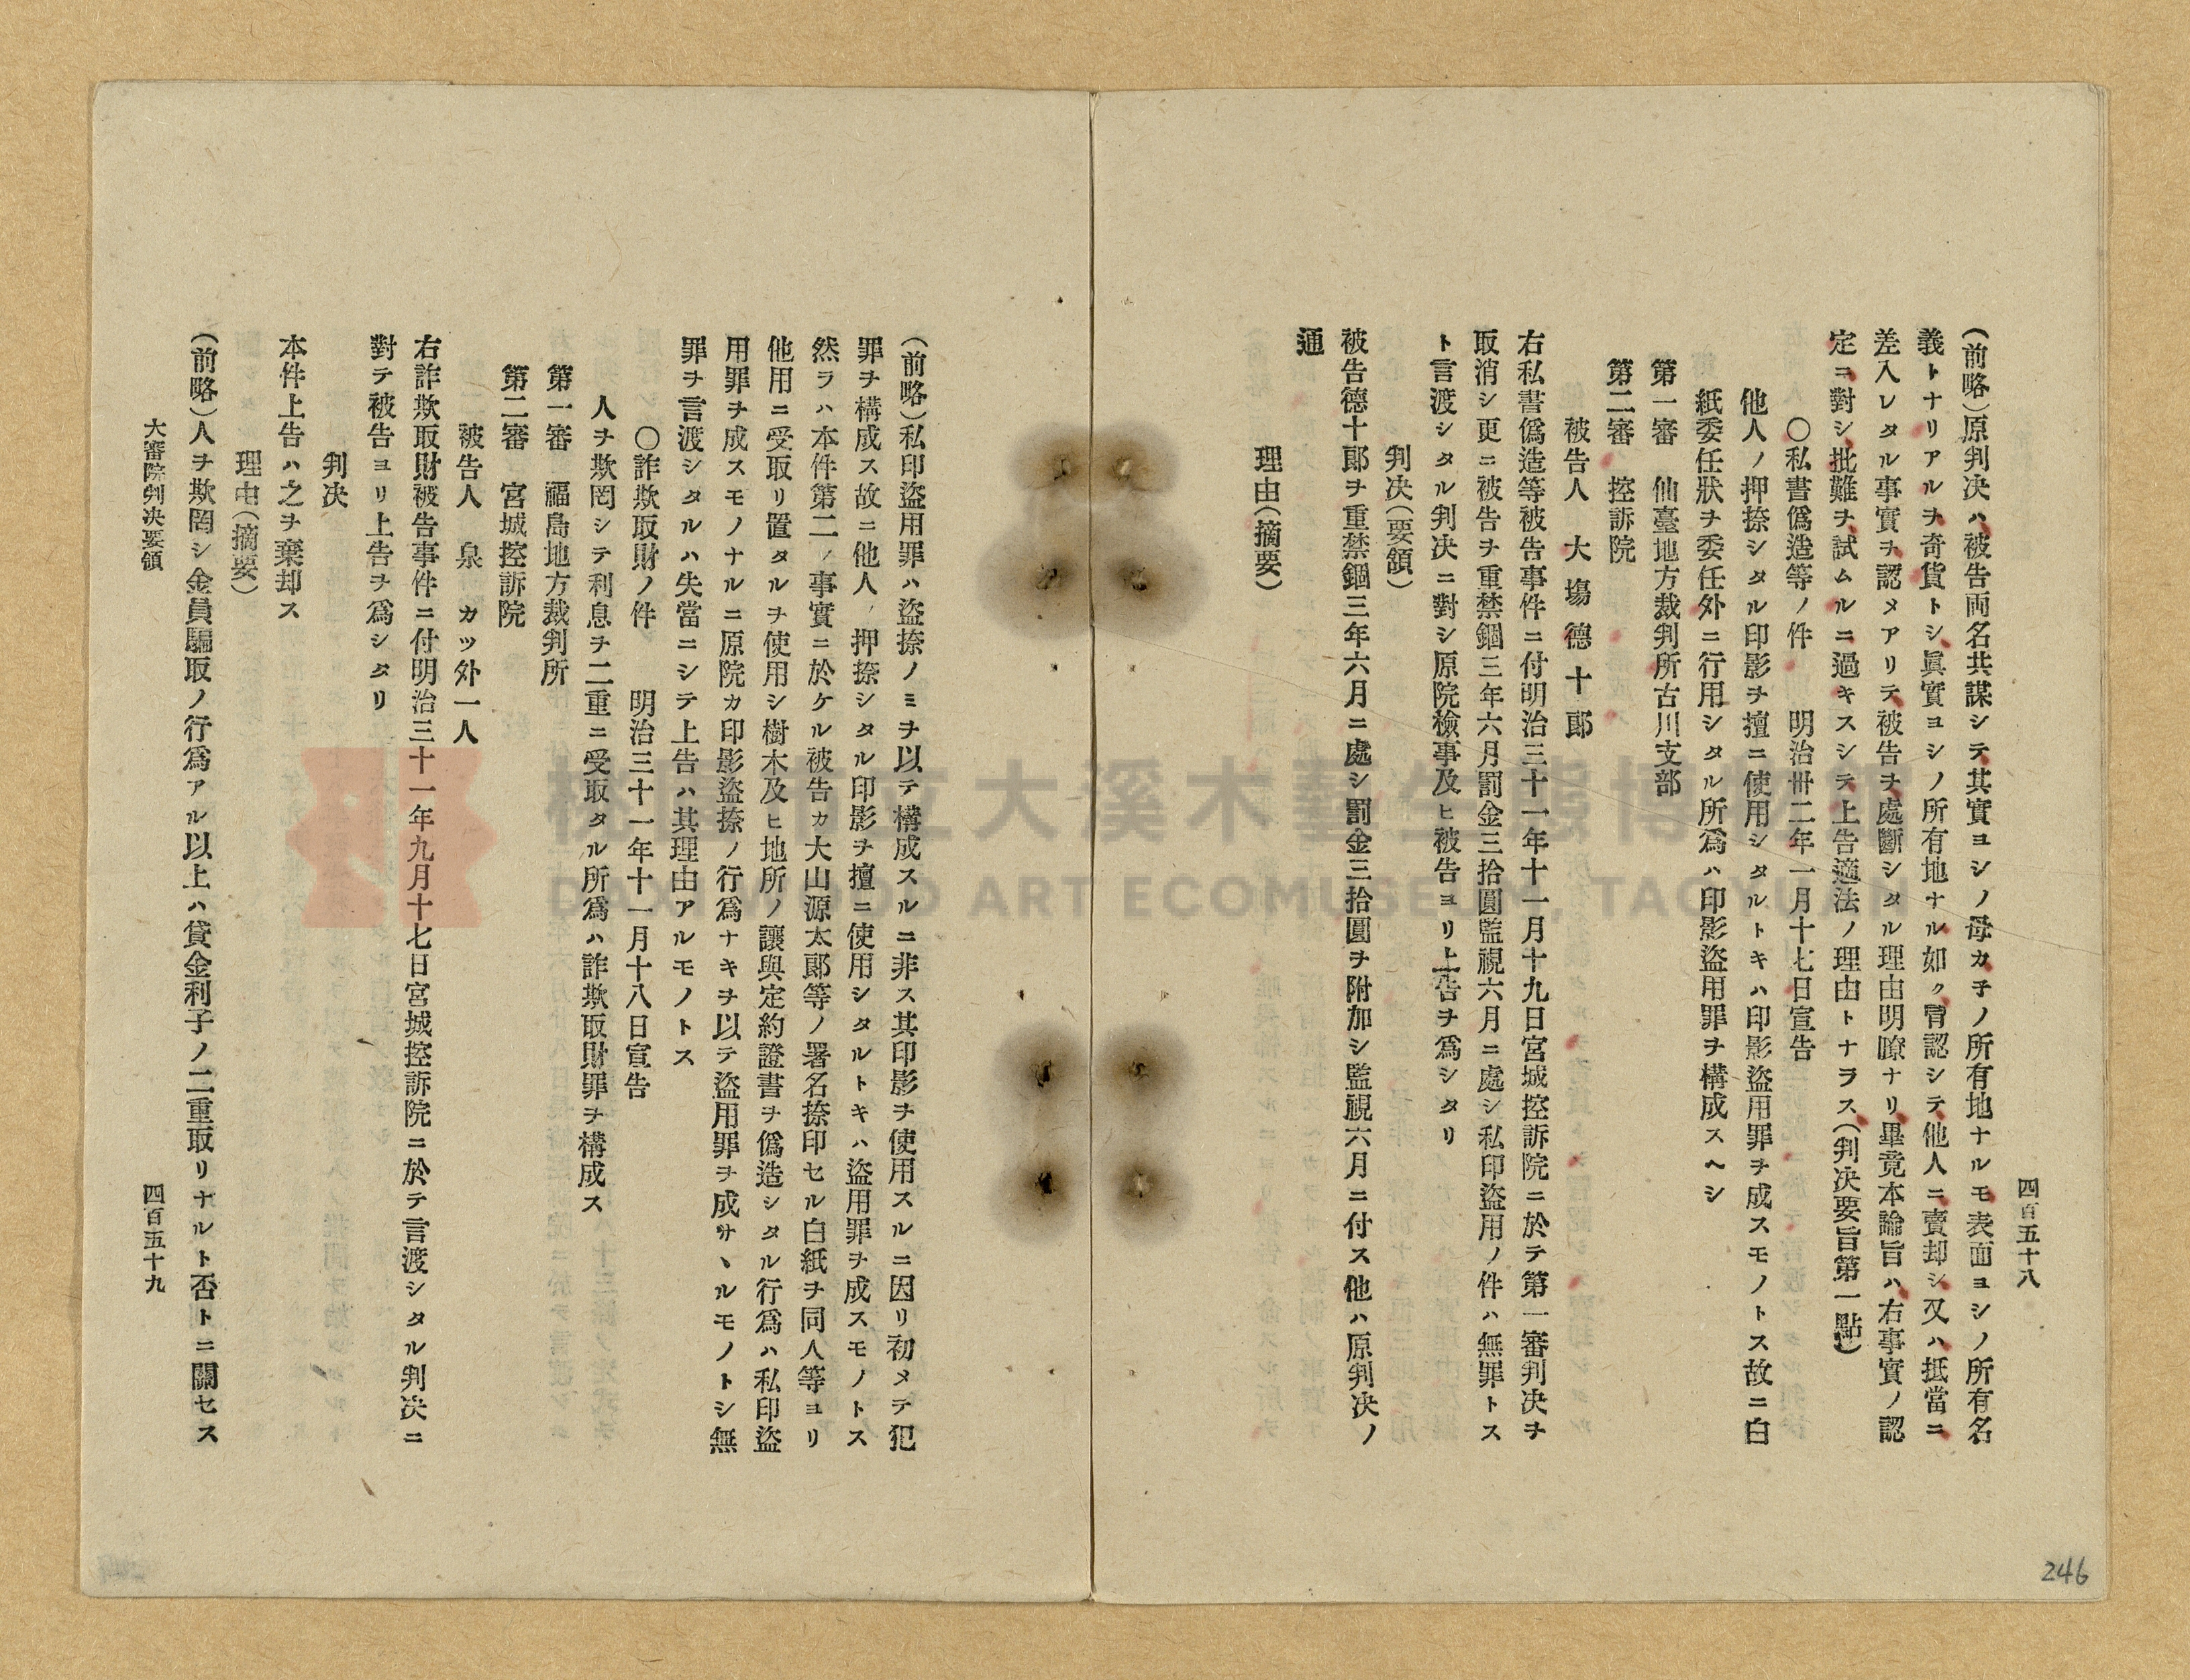 四百五十八
(前略)原判决ハ被告両名共謀シテ其實ヨシノ母カ子ノ所有地ナルモ表面ヨシノ所有名
義トナリアルヲ奇貨トシ眞實ヨシノ所有地ナル如ク冐認シテ他人ニ賣却シ又ハ抵當ニ
差入レタル事實ヲ認メアリテ被告ヲ處斷シタル理由明瞭ナリ畢竟本論旨ハ右事實ノ認
定ニ對シ批難ヲ試ムルニ過キスシテ上告適法ノ理由トナラス(判决要旨第一點)
〇私書僞造等ノ件 明治卅二年一月十七日宣告
他人ノ押捺シタル印影ヲ擅ニ使用シタルトキハ印影盜用罪ヲ成スモノトス故ニ白
紙委任狀ヲ委任外ニ行用シタル所爲ハ印影盜用罪ヲ構成スヘシ
第一審 仙臺地方裁判所古川支部
第二審 控訴院
被告人 大塲德十郞
右私書僞造等被告事件ニ付明治三十一年十一月十九日宮城控訴院ニ於テ第一審判决ヲ
取消シ更ニ被告ヲ重禁錮三年六月罰金三拾圓監視六月ニ處シ私印盜用ノ件ハ無罪トス
ト言渡シタル判决ニ對シ原院檢事及ヒ被告ヨリ上告ヲ爲シタリ
判决(要領)
被告德十郞ヲ重禁錮三年六月ニ處シ罰金三拾圓ヲ附加シ監視六月ニ付ス他ハ原判决ノ
通
理由(摘要)
(前略)私印盜用罪ハ盜捺ノミヲ以テ構成スルニ非ス其印影ヲ使用スルニ因リ初メテ犯
罪ヲ構成ス故ニ他人ノ押捺シタル印影ヲ擅ニ使用シタルトキハ盜用罪ヲ成スモノトス
然ラハ本件第二ノ事實ニ於ケル被告カ大山源太郞等ノ署名捺印セル白紙ヲ同人等ヨリ
他用ニ受取リ置タルヲ使用シ樹木及ヒ地所ノ讓與定約證書ヲ僞造シタル行爲ハ私印盜
用罪ヲ成スモノナルニ原院カ印影盜捺ノ行爲ナキヲ以テ盜用罪ヲ成サヽルモノトシ無
罪ヲ言渡シタルハ失當ニシテ上告ハ其理由アルモノトス
〇詐欺取財ノ件 明治三十一年十一月十八日宣告
人ヲ欺罔シテ利息ヲ二重ニ受取タル所爲ハ詐欺取財罪ヲ構成ス
第一審 福島地方裁判所
第二審 宮城控訴院
被告人 泉 カツ外一人
右詐欺取財被告事件ニ付明治三十一年九月十七日宮城控訴院ニ於テ言渡シタル判决ニ
對テ被告ヨリ上告ヲ爲シタリ
判决
本件上告ハ之ヲ棄却ス
理由(摘要)
(前略)人ヲ欺罔シ金員騙取ノ行爲アル以上ハ貸金利子ノ二重取リナルト否トニ關セス
大審院判决要領 四百五十九
246
桃園市立大溪木藝生態博物館
DAXI WOOD ART ECOMUSEUM, TAOYUAN